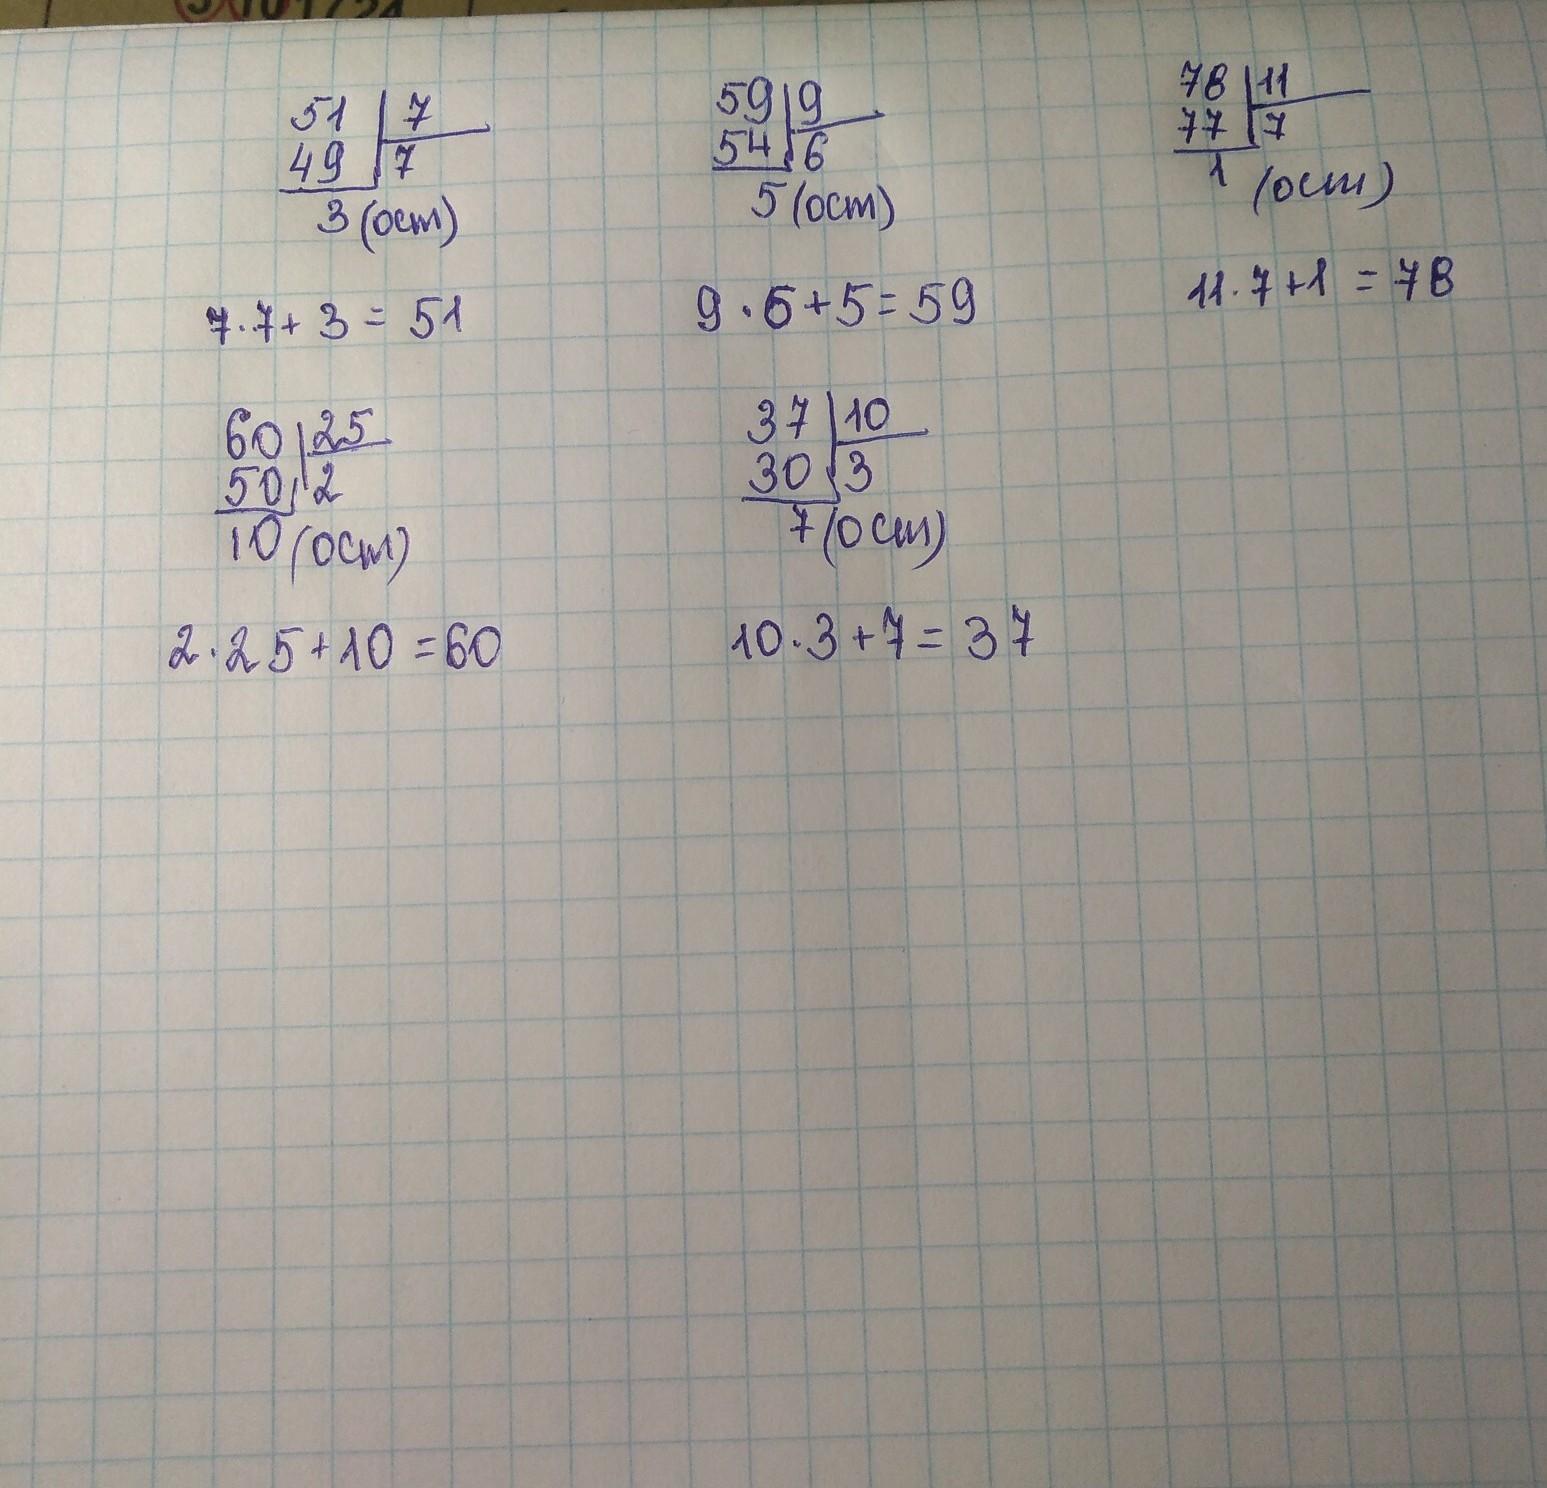 51 7
49 7
3 (ост)
7·7+3=51
59 9
54 6
5 (ост)
9·6+5=59
78 11
77 7
1 (ост)
11·7+1=78
60 25
50 2
10 (ост)
2·25+10=60
37 10
30 3
7 (ост)
10·3+7=37